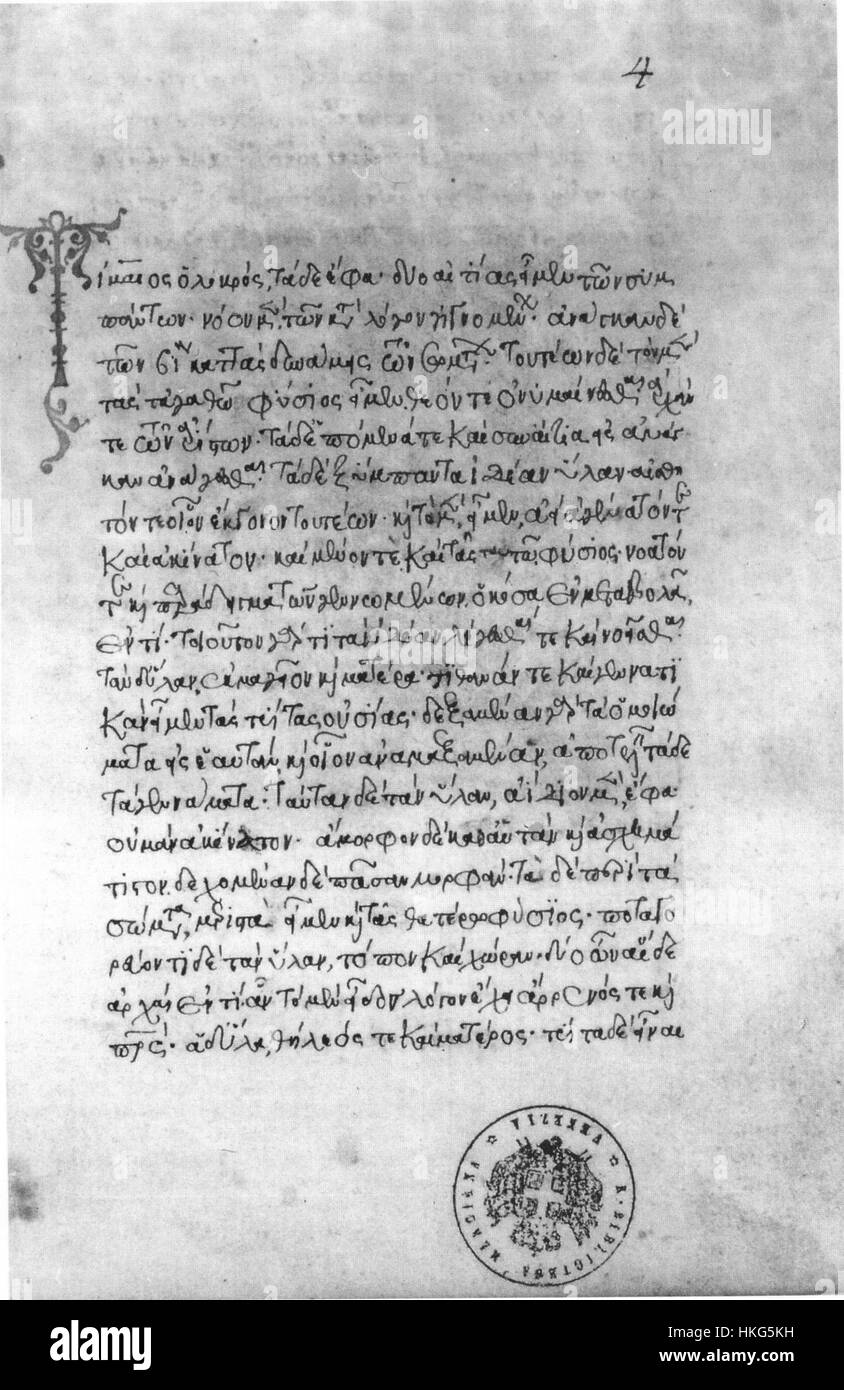 4
Τίμαιος ὁ λοκρός, τάδε ἔφα· δύο αἰτίας εἶμεν τῶν συμ
πάντων· νόον μὲν, τῶν κατὰ λόγον γιγνομένων· ἀνάγκαν δὲ
τῶν βίᾳ κατὰς δυνάμεις τῶν σωμάτων. τουτέων δὲ τὸν μὲν
τᾶς τἀγαθῶ φύσιος εἶμεν, θεόν τε ὀνυμαίνεσθαι ἀρχάν
τε τῶν ἀρίστων. τὰ δ' ἑπόμενά τε καὶ συναίτια ἐς ἀνάγ
καν ἀνάγεσθαι. τὰ δὲ ξύμπαντα ἰδέαν ὕλαν αἰσθη
τόν τε οἷον ἔκγονον τουτέων. καὶ τὸ μὲν, εἶμεν, ἀεὶ ἀγένατόν τε
καὶ ἀκίνατον. καὶ μένον τε καὶ τᾶς ταυτῶ φύσιος· νοατόν
τε καὶ παράδειγμα τῶν γεννωμένων, ὁκόσα ἐν μεταβολᾶ
ἐντί. τοιοῦτον γάρ τι τὰν ἰδέαν λέγεσθαί τε καὶ νοεῖσθαι.
τὰν δ' ὕλαν, ἐκμαγεῖον καὶ ματέρα· τιθάναν τε καὶ γεννατι
κὰν εἶμεν τᾶς τρίτας οὐσίας. δεξαμέναν γὰρ τὰ ὁμοιώ
ματα ἐς ἑαυτὰν, καὶ οἷον ἀναμαξαμέναν, ἀποτελεῖν τάδε
τὰ γεννάματα. ταύταν δὲ τὰν ὕλαν, ἀΐδιον μὲν, ἔφα·
οὐ μὰν ἀκίνατον. ἄμορφον δὲ καθ' αὑτὰν καὶ ἀσχημά
τιστον. δεχομέναν δὲ πᾶσαν μορφάν. τὰν δὲ περὶ τὰ
σώματα, μεριστὰν εἶμεν καὶ τᾶς θατέρω φύσιος. ποταγο
ρεύοντι δὲ τὰν ὕλαν, τόπον καὶ χώραν. δύο ὦν αἵδε
ἀρχαὶ ἐναντίαι· ὧν τὸ μὲν εἶδος λόγον ἔχει ἄρρενός τε καὶ
πατρός· ἁ δ' ὕλα, θήλεός τε καὶ ματέρος. τρίτα δὲ εἶναι
R. BIBLIOTECA MARCIANA ☆ VENEZIA ☆
alamy stock photo
HKG5KH
www.alamy.com